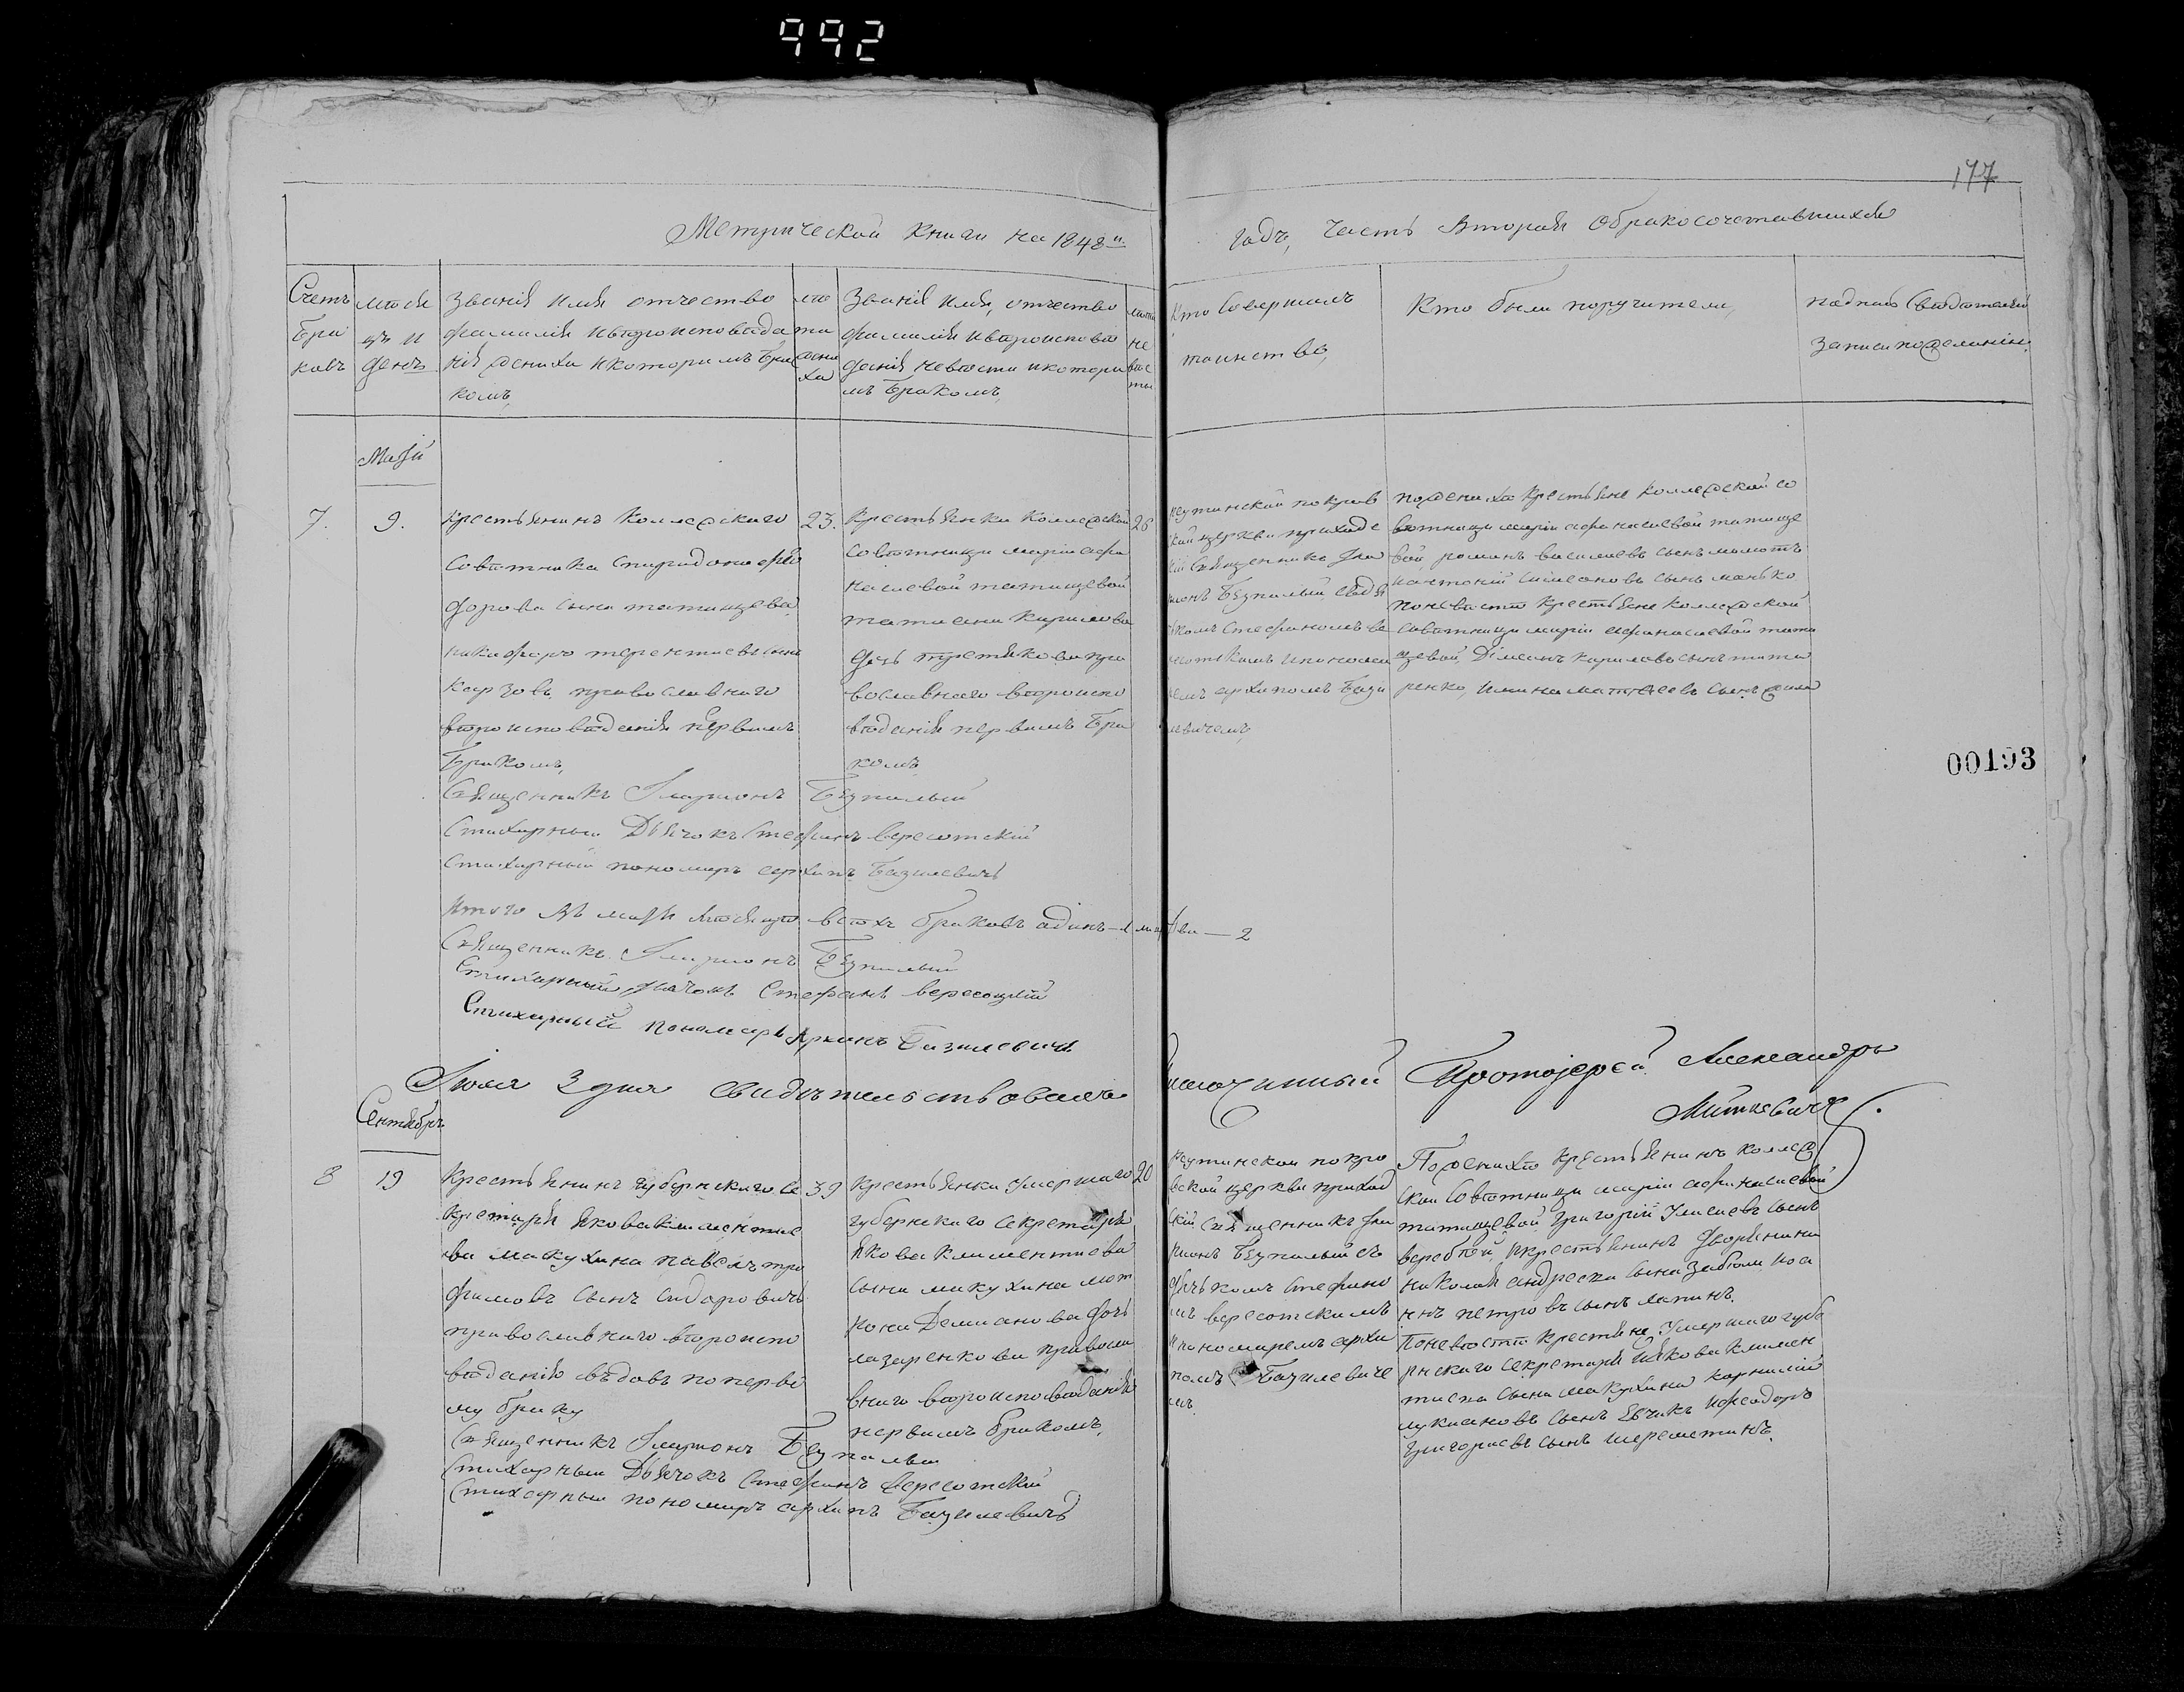 992
177
Метрической книги на 1848й
годъ, часть вторая обракосочетавшихся
Счетъ браковъ
месяцъ и день
Званія имя отчество
фамилія и вѣроисповѣда
нія жениха и которимъ бра
комъ,
лѣта жениха
Званія имя, отчество
фамилія и вѣроисповѣ
данія невѣсти и котори
мъ бракомъ,
лѣта невѣсты
Кто совершалъ
таинство,
Кто были поручители,
записи по желанію.
Май
7.
9.
Крестьянинъ коллежскаго
советника спиридона фео
дорова сына татищева
никифоръ терентиевъ сынъ
карзовъ православнаго
вѣроисповѣданія первимъ
бракомъ,
23.
Крестьянка коллежской
советници маріи афа
насиевой татищевой
татиана кирилова
дочь третякова пра
вославнаго вѣроиспо
вѣданія первимъ бра
комъ
26
реутинской покров
кой церкви приходс
кій священникъ Ила
ріонъ Безпалый, съ дья
чкомъ стефаномъ ве
ресотскимъ и понома
ремъ архипомъ Бази
левичемъ,
по женихѣ крестьяне коллежской со
ветници маріи афанасиевой татище
вой, романъ василиевъ сынъ
симеоновъ сынъ манько
по невѣстѣ крестьяне коллежской
советници маріи афанасиевой тати
щевой, Діманъ кириловъ сынъ тита
ренко, матвеевъ сынъ
00193
Священникъ Иларионъ Безпалый
Стихарный Дьячокъ Стефанъ вересотскій
стихарный пономаръ архипъ Базилевичъ
Итого въ маѣ месяце всехъ браковъ одинъ — 1
2
Священникъ Иларионъ Безпалый
Стихарный дьячокъ Стефанъ вересоцкій
Стихарный пономарь Архипъ Базилевичъ
Июля 3 дня свидѣтельствовалъ
Благочинный Протоіерей Александръ
Миткевичъ.
Сентябрь
8
19
Крестьянинъ губернскаго се
кретаря якова климентие
ва макухина павелъ тро
фимовъ сынъ сидоровичъ
православнаго вѣроиспо
вѣданія вдовъ по перво
му браку
39
Крестьянка умершаго
губернскаго секретаря
якова климентиева
сына макухина мат
рона Демианова дочь
лазаренкова правосла
внаго вѣроисповѣданія
первимъ бракомъ,
20
реутинской покро
вской церкви приход
скій священникъ Ила
рионъ Безпалый съ
дьячкомъ стефано
мъ вересотскимъ
и пономаремъ архи
помъ Базилевиче
мъ.
По женихѣ крестьянинъ коллеж
ской советници маріи афанасиевой
татищевой, григорій сынъ
веребтей, и крестьянинъ дворянина
николая андреева сына
петровъ сынъ лапинъ.
По невѣстѣ крестьяне умершаго губе
рнскаго секретаря якова климен
тиева сына макухина корнилій
лукиановъ сынъ и феодоръ
григориевъ сынъ шереметинъ.
Священникъ Иларионъ Безпалый
Стихарный Дьячокъ Стефанъ вересотскій
Стихарный пономаръ архипъ Базилевичъ